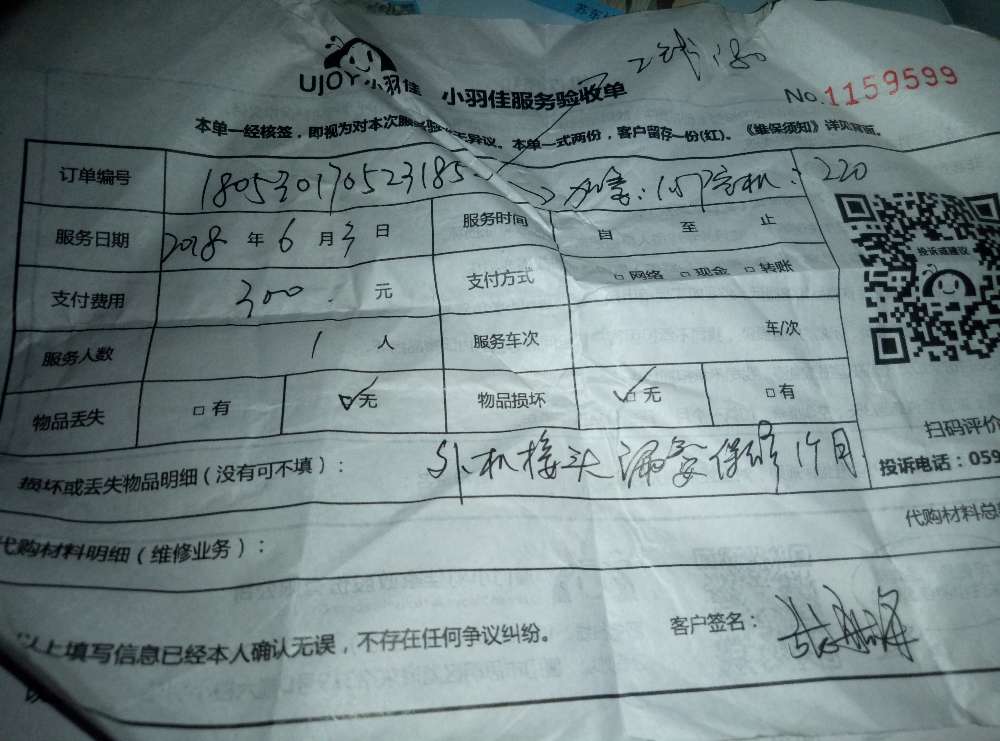 UJOY小羽佳 小羽佳服务验收单
No.1159599
本单一经核签，即视为对本次服 无异议。本单一式两份，客户留存一份(红)。《维保须知》详见背面。
订单编号 180530170523185
220
服务日期 2018 年 6 月 3 日 服务时间 自 至 止
支付费用 300 元 支付方式 □网络 □现金 □转账
投诉或建议
服务人数 1 人 服务车次 车/次
物品丢失 □有 ☑无 物品损坏 ☑无 □有
扫码评价
损坏或丢失物品明细（没有可不填）： 外机接头漏 保修1个月
投诉电话：059
代购材料明细（维修业务）：
代购材料总
以上填写信息已经本人确认无误，不存在任何争议纠纷。 客户签名：